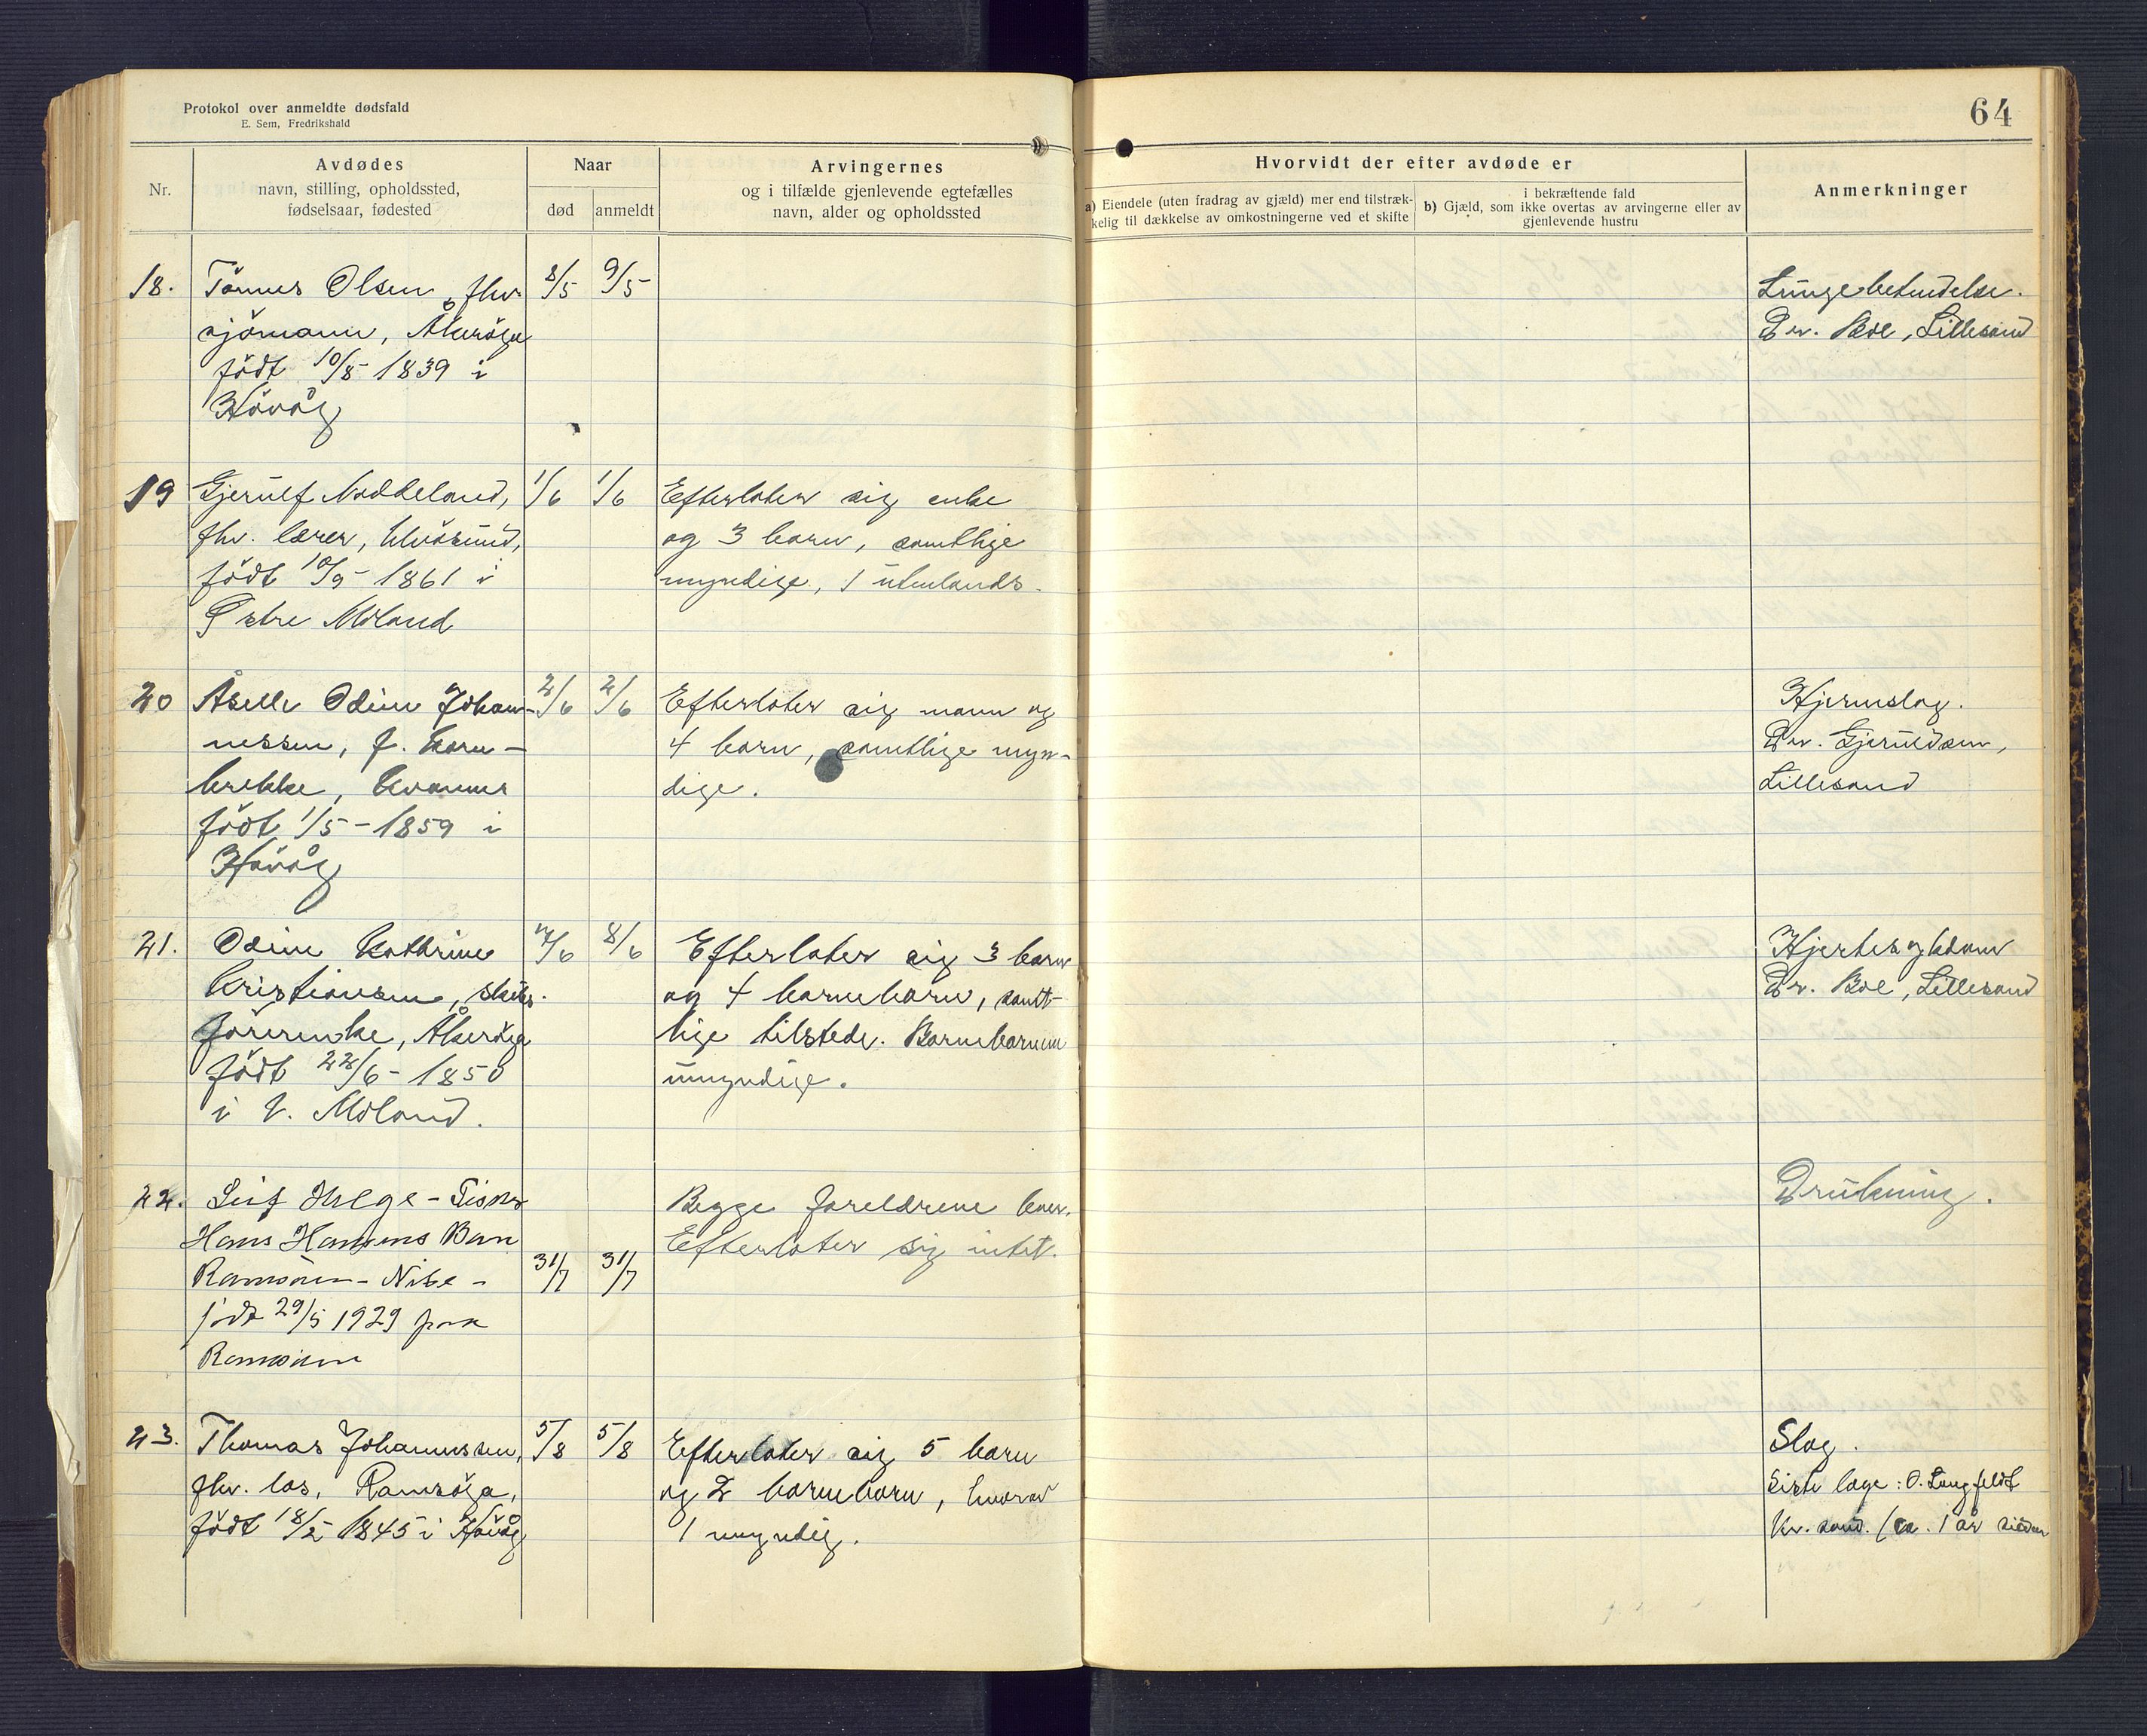 Protokol over anmeldte dødsfald
E. Sem, Fredrikshald
64
Nr.
Avdødes
navn, stilling, opholdssted,
fødselsaar, fødested
Naar
død
anmeldt
Arvingernes
og i tilfælde gjenlevende egtefælles
navn, alder og opholdssted
Hvorvidt der efter avdøde er
a) Eiendele (uten fradrag av gjæld) mer end tilstræk-
kelig til dækkelse av omkostningerne ved et skifte
i bekræftende fald
b) Gjæld, som ikke overtas av arvingerne eller av
gjenlevende hustru
Anmerkninger
18. Tönnes Olsen, fhv. 8/5 9/5
sjömann, Åkeröya
födt 10/8 - 1839 i
Hövåg
Lungebetendelse.
Dr. Boe, Lillesand
19 Gjerulf Noddeland, 1/6 1/6 Efterlater sig enke
fhv. lærer, Ulvösund, og 3 barn, samtlige
födt 10/9 - 1861 i myndige, 1 utenlands.
Østre Moland
20 Åselle Odine Johan- 2/6 2/6 Efterlater sig mann og
nessen, f. Korn- 4 barn, samtlige myn-
brekke, Kvannes dige.
födt 1/5 - 1859 i
Hövåg
Hjerneslag.
Dr. Gjeruldsen,
Lillesand
21. Odine Kathrine 7/6 8/6 Efterlater sig 3 barn
Kristiansen, skibs- og 4 barnebarn, samt-
förerenke, Åkeröya lige tilstede. Barnebarnene
födt 22/6 - 1850 umyndige.
i V. Moland.
Hjertesygdom
Dr. Boe, Lillesand
22. Leif Helge - Fisker Begge foreldrene lever.
Hans Hansens Barn Efterlater sig intet.
Ramsöen - Nibe - 31/7 31/7
født 29/5 1929 paa
Ramsöen
Drukning.
23. Thomas Johannessen, 5/8 5/8 Efterlater sig 5 barn
fhv. los, Ramsöya, og 2 barnebarn, hvorav
födt 18/2 1845 i Hövåg 1 myndig.
Slag.
Siste læge: O. Langfeldt
Kr. sand. (ca. 1 år siden